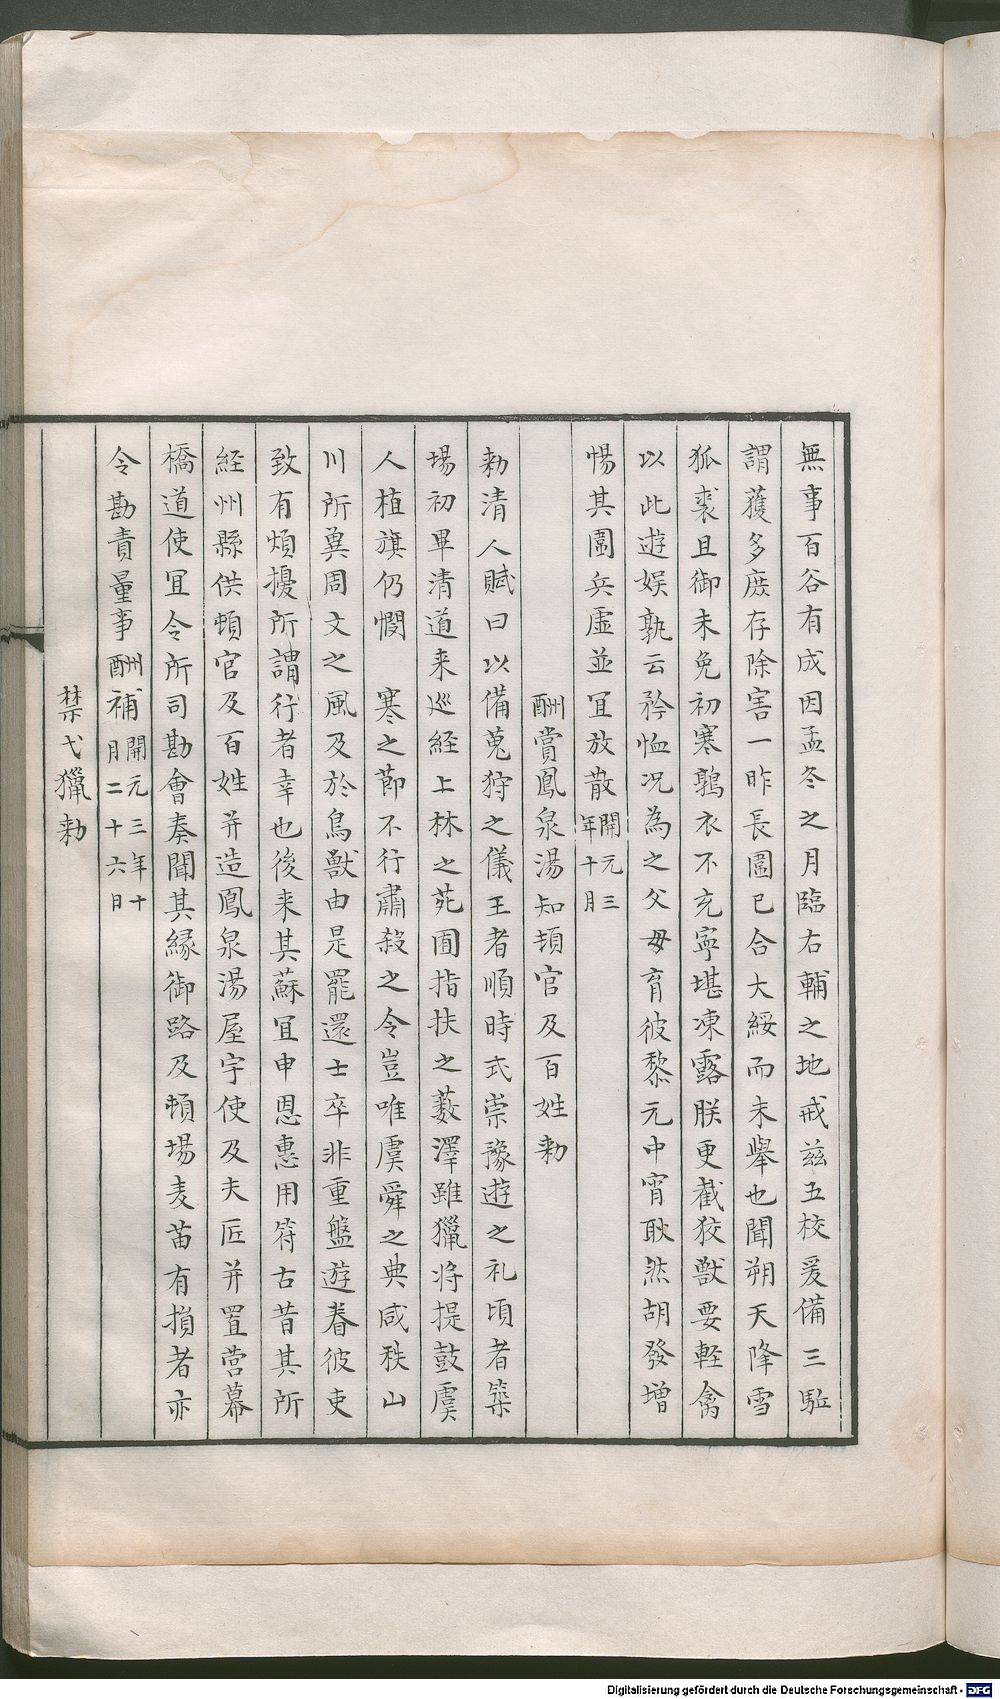 無事百谷有成因孟冬之月臨右輔之地戒兹五校爰備三駈
謂獲多庶存除害一昨長圍已合大綏而未舉也聞朔天降雪
狐裘且御未免初寒鶉衣不充寧堪凍露朕更截狡獸要輕禽
以此遊娱孰云矜恤况為之父毋育彼黎元中宵耿然胡發增
惕其圍兵虛並冝放散開元三年十月
酬賞鳳泉湯知頓官及百姓勅
勅清人賦曰以備蒐狩之儀王者順時式崇豫遊之礼頃者築
場初畢清道来巡経上林之苑囿指扶之藪澤雖獵将提鼓虞
人植旗仍憫寒之莭不行肅殺之令豈唯虞舜之典咸秩山
川所冀周文之風及於鳥獸由是罷還士卒非重盤遊眷彼吏
致有煩擾所謂行者幸也後来其蘇冝申恩惠用符古昔其所
経州縣供頓官及百姓并造鳳泉湯屋宇使及夫匠并置营幕
橋道使冝令所司勘會奏聞其縁御路及頓場麦苗有損者亦
令勘責量事酬補開元三年十月二十六日
禁弋獵勅
Digitalisierung gefördert durch die Deutsche Forschungsgemeinschaft - DFG